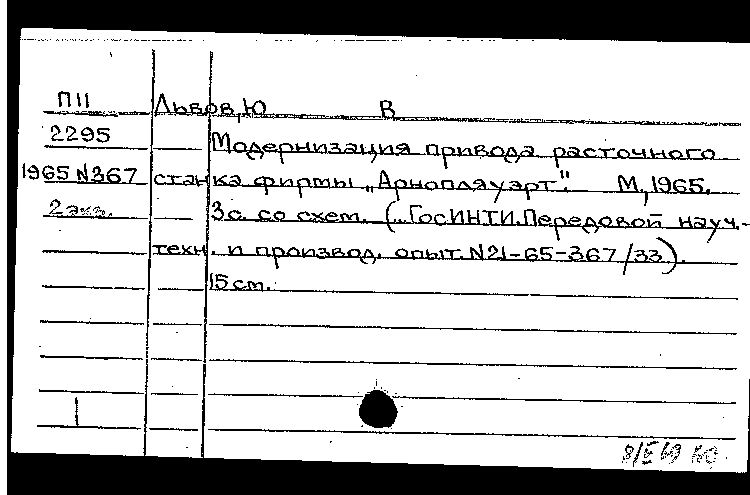 П11 Львов, Ю В
2295 Модернизация привода расточного
1965 №367 станка фирмы „Арнопляуэрт". М, 1965.
2 экз. 3с. со схем. (...ГосИНТИ. Передовой науч.-
техн. и производ. опыт. №21-65-367/33).
15 см.
1